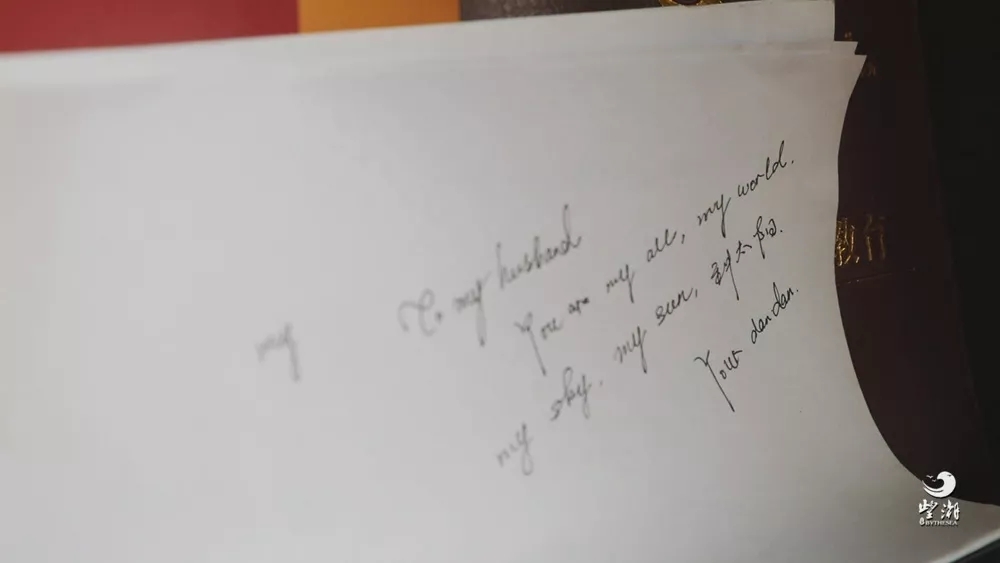 my
To my husband
You are my all, my world.
my sky, my sun, 太阳.
Your dandan.
BYTHESEA